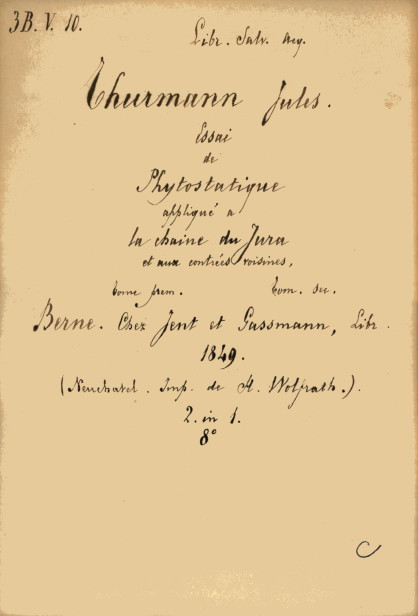 3B. V. 10.
Libr. Salv. acq.
Thurmann Jules.
Essai
de
Phytostatique
appliqué a
la chaine du Jura
et aux contrées voisines,
tome prem. Tom. sec.
Berne. Chez Jent et Gassmann, Libr.
1849.
(Neuchatel. Imp. de H. Wolfrath.).
2. in 1.
8°
C